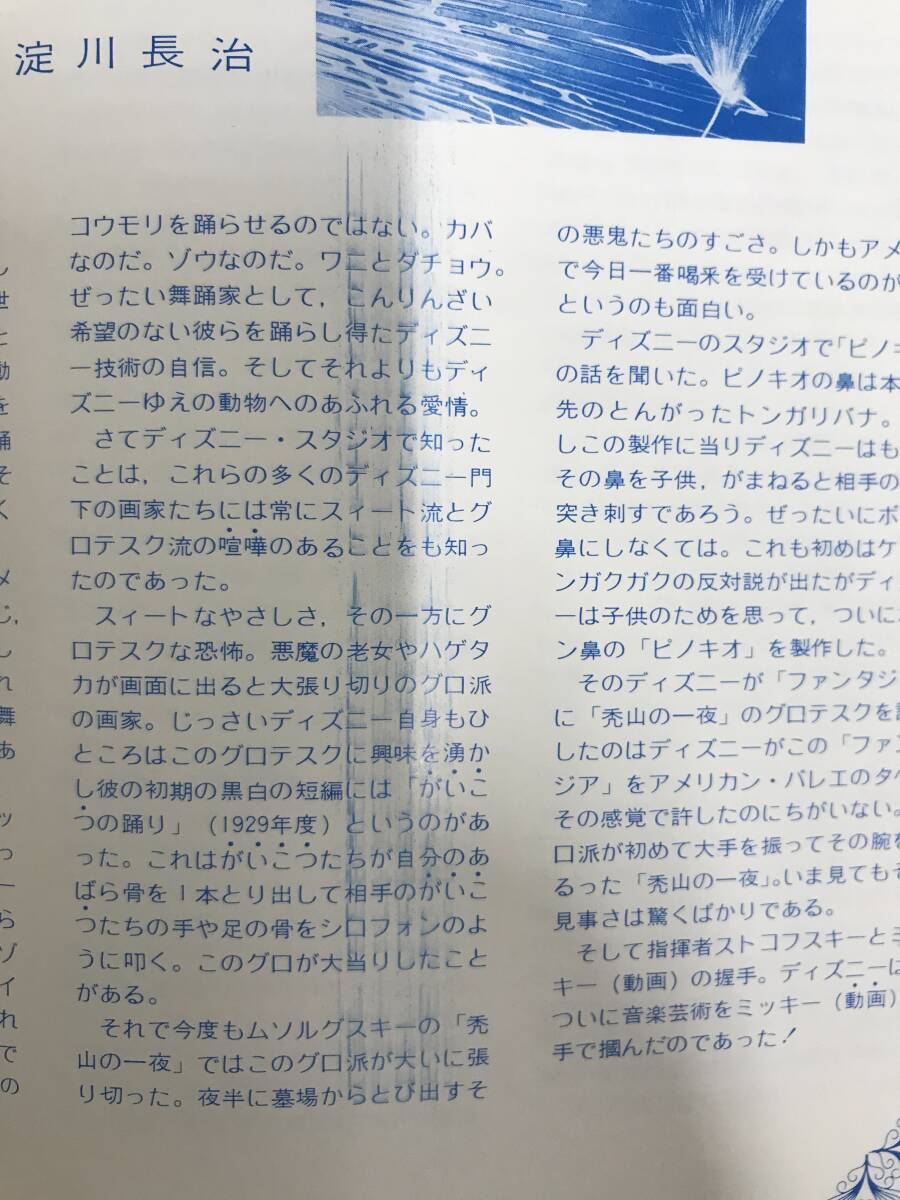 淀川長治
コウモリを踊らせるのではない。カバ
なのだ。ゾウなのだ。ワニとダチョウ。
ぜったい舞踊家として，こんりんざい
希望のない彼らを踊らし得たディズニ
ー技術の自信。そしてそれよりもディ
ズニーゆえの動物へのあふれる愛情。
さてディズニー・スタジオで知った
ことは，これらの多くのディズニー門
下の画家たちには常にスィート流とグ
ロテスク流の喧嘩のあることをも知っ
たのであった。
スィートなやさしさ，その一方にグ
ロテスクな恐怖。悪魔の老女やハゲタ
カが画面に出ると大張り切りのグロ派
の画家。じっさいディズニー自身もひ
ところはこのグロテスクに興味を湧か
し彼の初期の黒白の短編には「がいこ
つの踊り」(1929年度)というのがあ
った。これはがいこつたちが自分のあ
ばら骨を1本とり出して相手のがいこ
つたちの手や足の骨をシロフォンのよ
うに叩く。このグロが大当りしたこと
がある。
それで今度もムソルグスキーの「禿
山の一夜」ではこのグロ派が大いに張
り切った。夜半に墓場からとび出すそ
の悪鬼たちのすごさ。しかもアメ
で今日一番喝采を受けているのが
というのも面白い。
ディズニーのスタジオで「ピノキ
の話を聞いた。ピノキオの鼻は本
先のとんがったトンガリバナ。
しこの製作に当りディズニーはも
その鼻を子供，がまねると相手の
突き刺すであろう。ぜったいにボ
鼻にしなくては。これも初めはケ
ンガクガクの反対説が出たがディ
ーは子供のためを思って，ついに
ン鼻の「ピノキオ」を製作した。
そのディズニーが「ファンタジ
に「禿山の一夜」のグロテスクを
したのはディズニーがこの「ファン
ジア」をアメリカン・バレエのタベ
その感覚で許したのにちがいない。
ロ派が初めて大手を振ってその腕を
るった「禿山の一夜」。いま見てもそ
見事さは驚くばかりである。
そして指揮者ストコフスキーとミ
キー(動画)の握手。ディズニーは
ついに音楽芸術をミッキー(動画)
手で摑んだのであった！